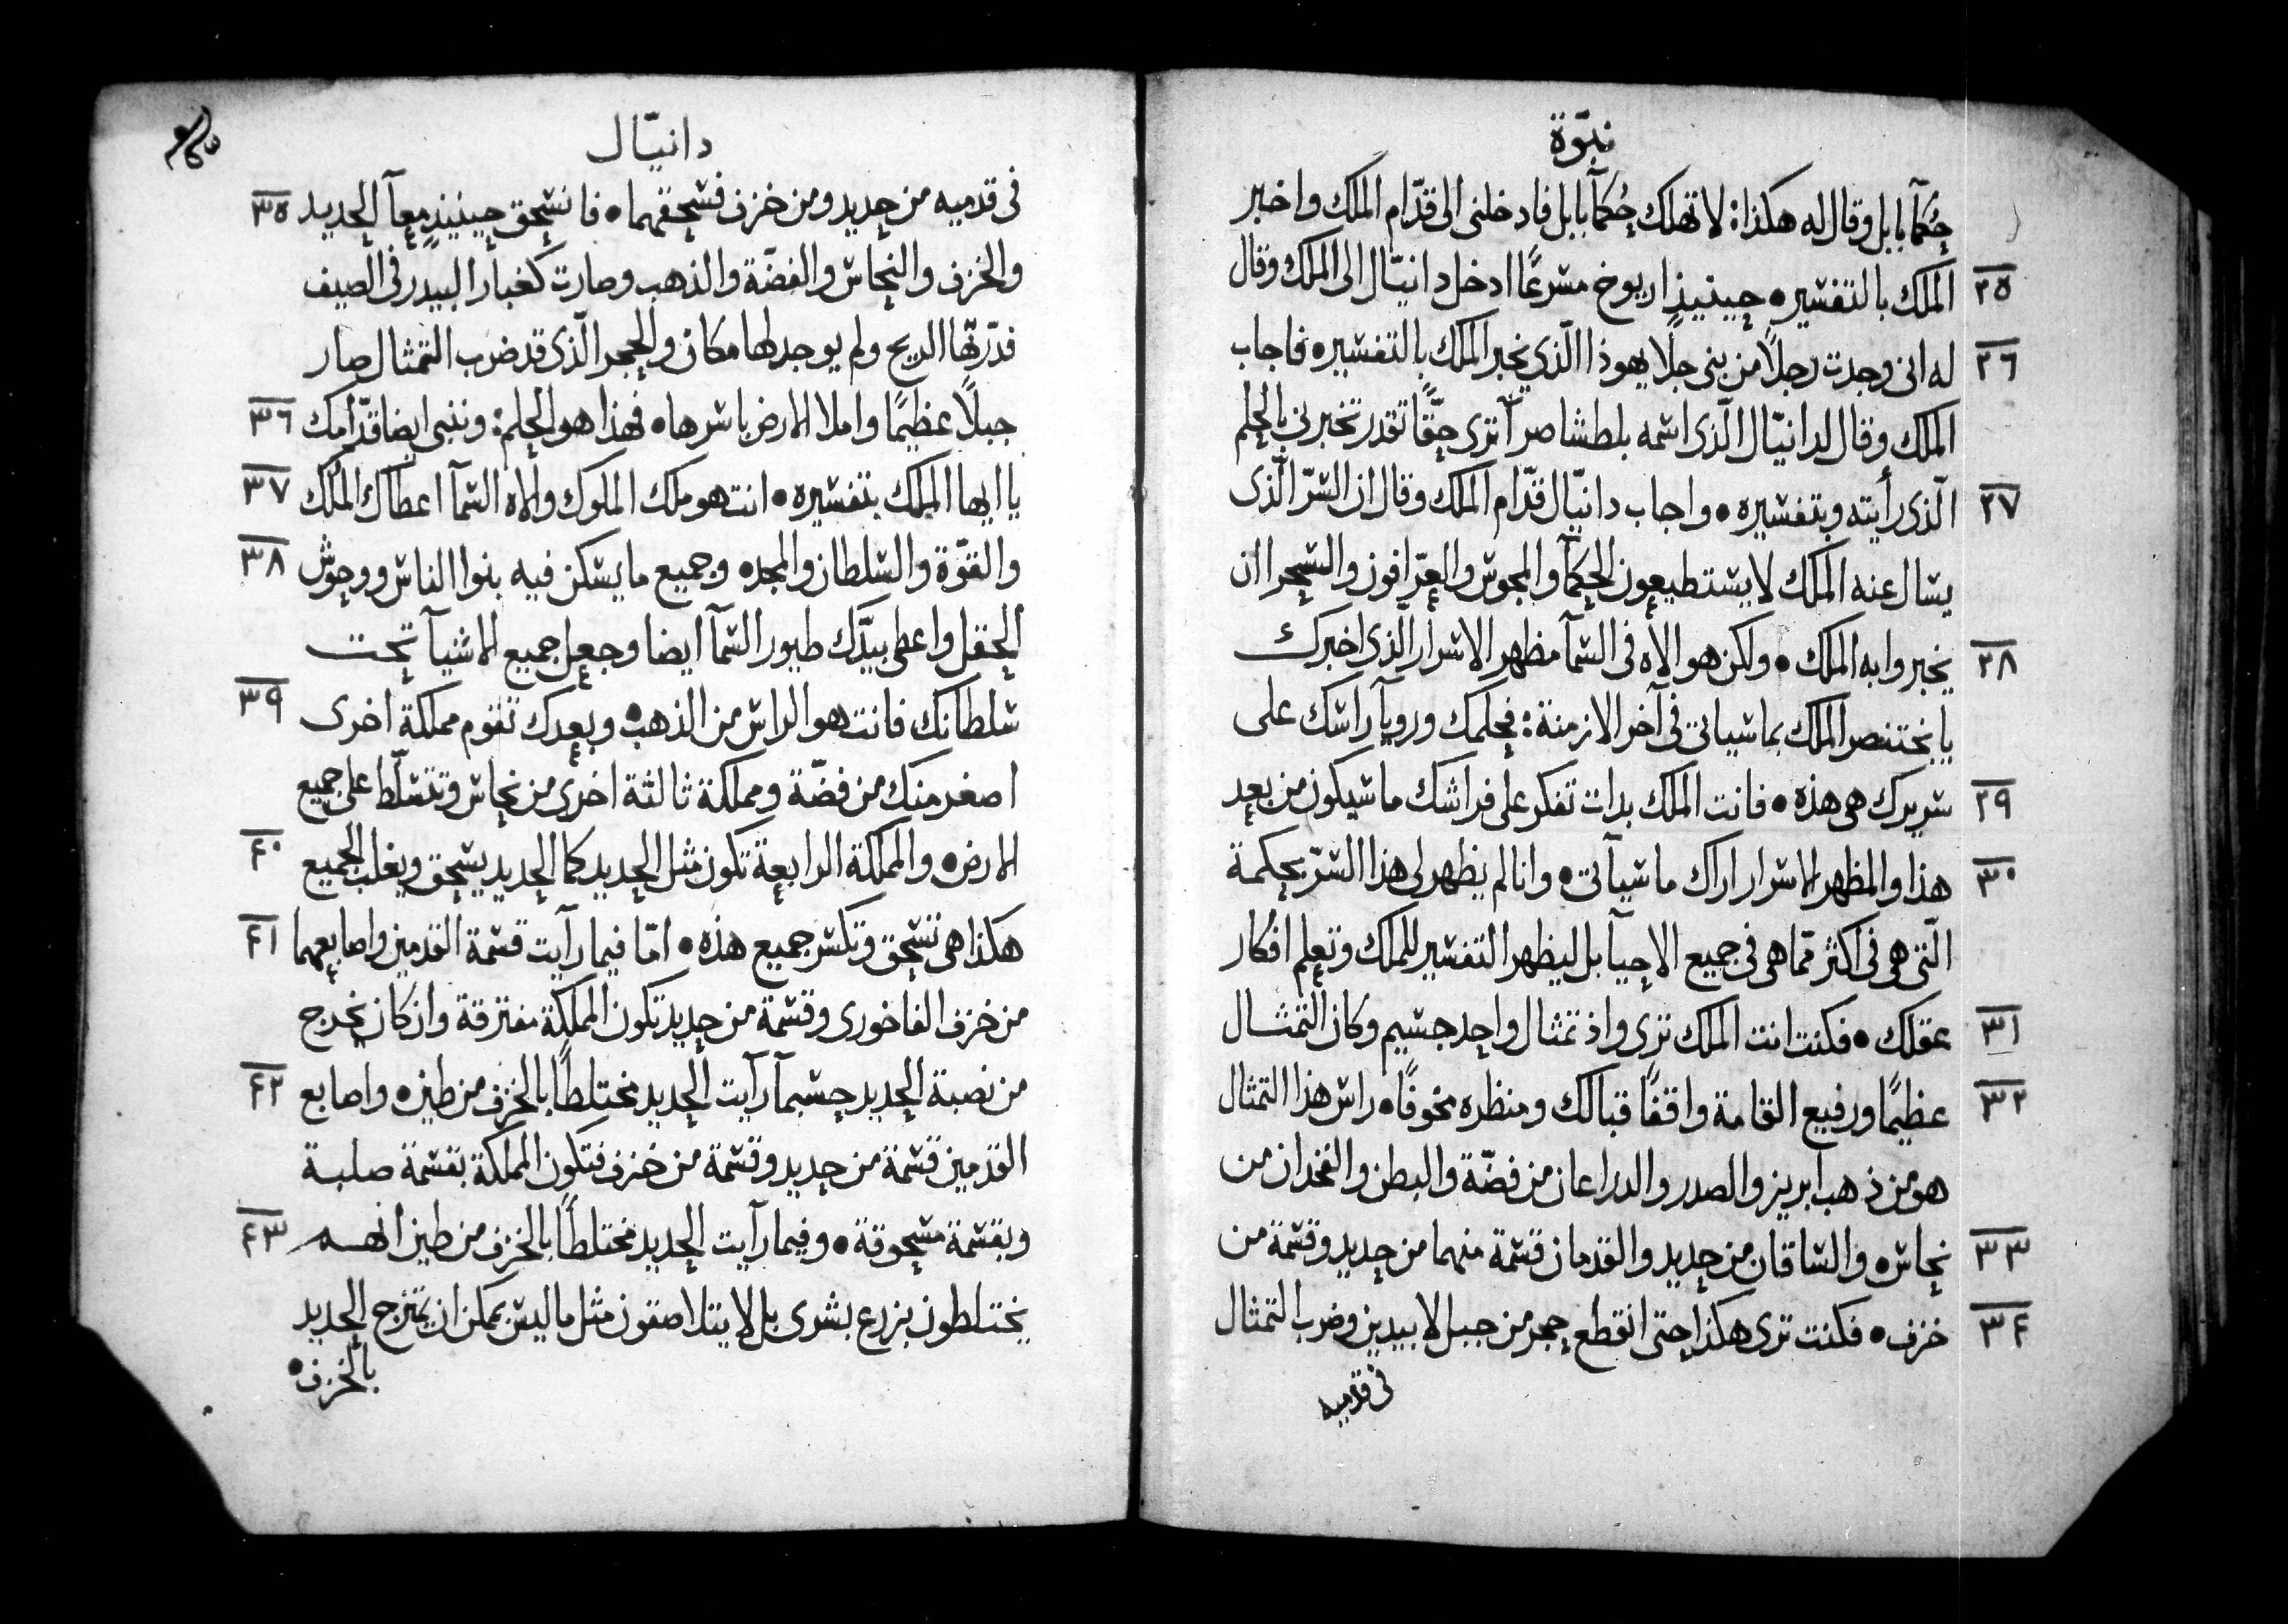 نبوّة
حُكمآ بابل وقال له هكذا: لا تهلك حُكمآ بابل فادخلنى الى قدّام الملك واخبر
٢٥ الملك بالتفسير • حينيذٍ اريوخ مسرعًا ادخل دانيّال الى الملك وقال
٢٦ له انى وجدت رجلاً من بنى جلا يهوذا الّذي يخبر الملك بالتفسير • فاجاب
الملك وقال لدانيّال الّذى اسمه بلطشاصر آترى حقًّا تقدر تخبرني بالحلم
٢٧ الّذى رأيته وبتفسيره • واجاب دانيّال قدّام الملك وقال ان السّر الّذى
يسال عنه الملك لا يستطيعون الحكمآ والمجوس والعرّافون والسحرا ان
٢٨ يخبروا به الملك • ولكن هو الاه فى السمآ مظهر الاسرار الّذى اخبرك
يا بختنصر الملك بما سياتى فى آخر الازمنة: فحلمك ورويآ راسك على
٢٩ سريرك هى هذه • فانت الملك بدات تفكر على فراشك ما سيكون من بعد
٣٠ هذا والمظهر الاسرار اراك ما سيآتى • وانا لم يظهر لى هذا السّر بحكمة
الّتى هى فى اكثر ممّا هى فى جميع الاحيآ بل ليظهر التفسير للملك وتعلم افكار
٣١ عقلك • فكنت انت الملك ترى واذ تمثال واحد جسيم وكان التمثال
٣٢ عظيمًا ورفيع القامة واقفًا قبالك ومنظره مخوفًا • راس هذا التمثال
هو من ذهب ابريز والصدر والدراعان من فضّة والبطن والفخدان من
٣٣ نحاس • والساقان من حديد والقدمان قسمة منهما من حديد وقسمة من
٣٤ خزف • فكنت ترى هكذا حتى انقطع حجر من جبل لا بيدين وضرب التمثال
فى قدميه
دانيّال
فى قدميه من حديد ومن خزف فسحقهما • فانسحق حينيذٍ معآ الحديد ٣٥
والخزف والنحاس والفضّة والذهب وصارت كغبار البيدر فى الصيف
فدرّتها الريح ولم يوجد لها مكان والحجر الّذى قد ضرب التمثال صار
جبلاً عظيمًا واملا الارض باسرها • فهذا هو الحلم: وننبى ايضا قدّامك ٣٦
يا ايها الملك بتفسيره • انت هو ملك الملوك والاه السمآ اعطاك الملك ٣٧
والقوّة والسلطان والمجد • وجميع ما يسكن فيه بنوا الناس ووحوش ٣٨
الحقل واعطى بيدّك طيور السمآ ايضا وجعل جميع الاشيآ تحت
سلطانك فانت هو الراس من الذهب • وبعدك تقوم مملكة اخرى ٣٩
اصغر منك من فضّة ومملكة ثالثة اخرى من نحاس وتتسلّط على جميع
الارض • والمملكة الرابعة تكون مثل الحديد كما الحديد يسحق ويغلب الجميع ٤٠
هكذا هى تسحق وتكسر جميع هذه • امّا فيما رآيت قسمة القدمين واصابعهما ٤١
من خزف الفاخورى وقسمة من حديد تكون المملكة مفترقة وان كان يخرج
من نصبة الحديد حسبما رآيت الحديد مختلطًا بالخزف من طين • واصابع ٤٢
القدمين قسمة من حديد وقسمة من خزف فتكون المملكة بقسمة صلبة
وبقسمة مسحوقة • وفيما رآيت الحديد مختلطًا بالخزف من طين انهم ٤٣
يختلطون بزرع بشرى بل لا يتلاصقون مثل ما ليس يمكن ان يمتزج الحديد
بالخزف •